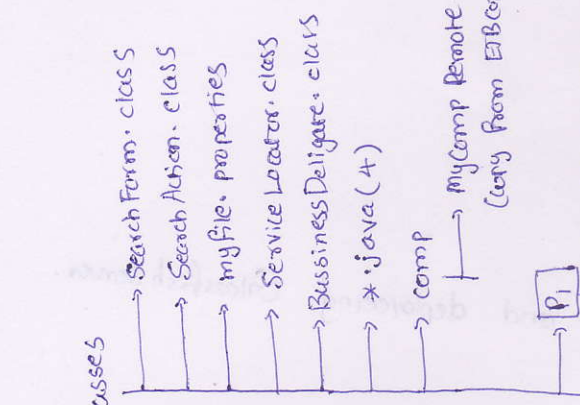 asses
SearchForm.class
SearchAction.class
myfile.properties
ServiceLocator.class
BussinessDeligate.class
*.java(4)
comp
MyComp Remote
(copy from EJBCo
P1
and deploying